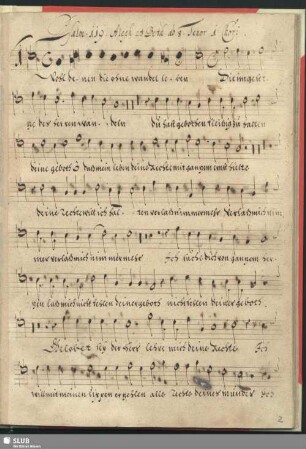 Psalm. 119. Aleph et Beth à 8. Tenor 1 Chori.
Wohl de- nen die ohne wandel le- ben Die im gesetz-
ze des herren wan- deln du hast gebothen fleißig zu halten
deine gebot O daß mein leben deine Rechte mit ganzem ernst hielte
deine Rechte will ich hal- ten verlaß mich nimmermehr Verlaß mich nim
mer verlaß mich nimmermehr Ich suche dich von ganzem her-
zen laß mich nicht fehlen deiner gebot nicht fehlen deiner gebot
Gelobet sey der Herr lehre mich deine Rechte Ich
will mit meinen lippen erzehlen alle Rechte deines mundes
2
SLUB